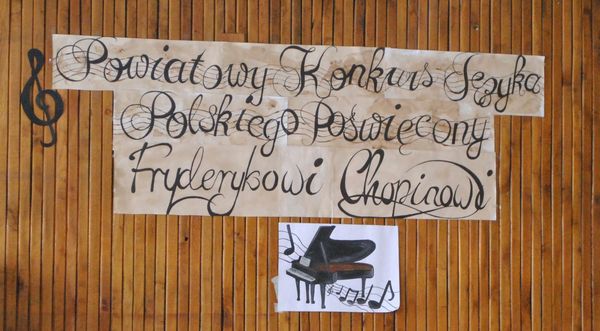 Powiatowy Konkurs Języka
Polskiego Poświęcony
Fryderykowi Chopinowi